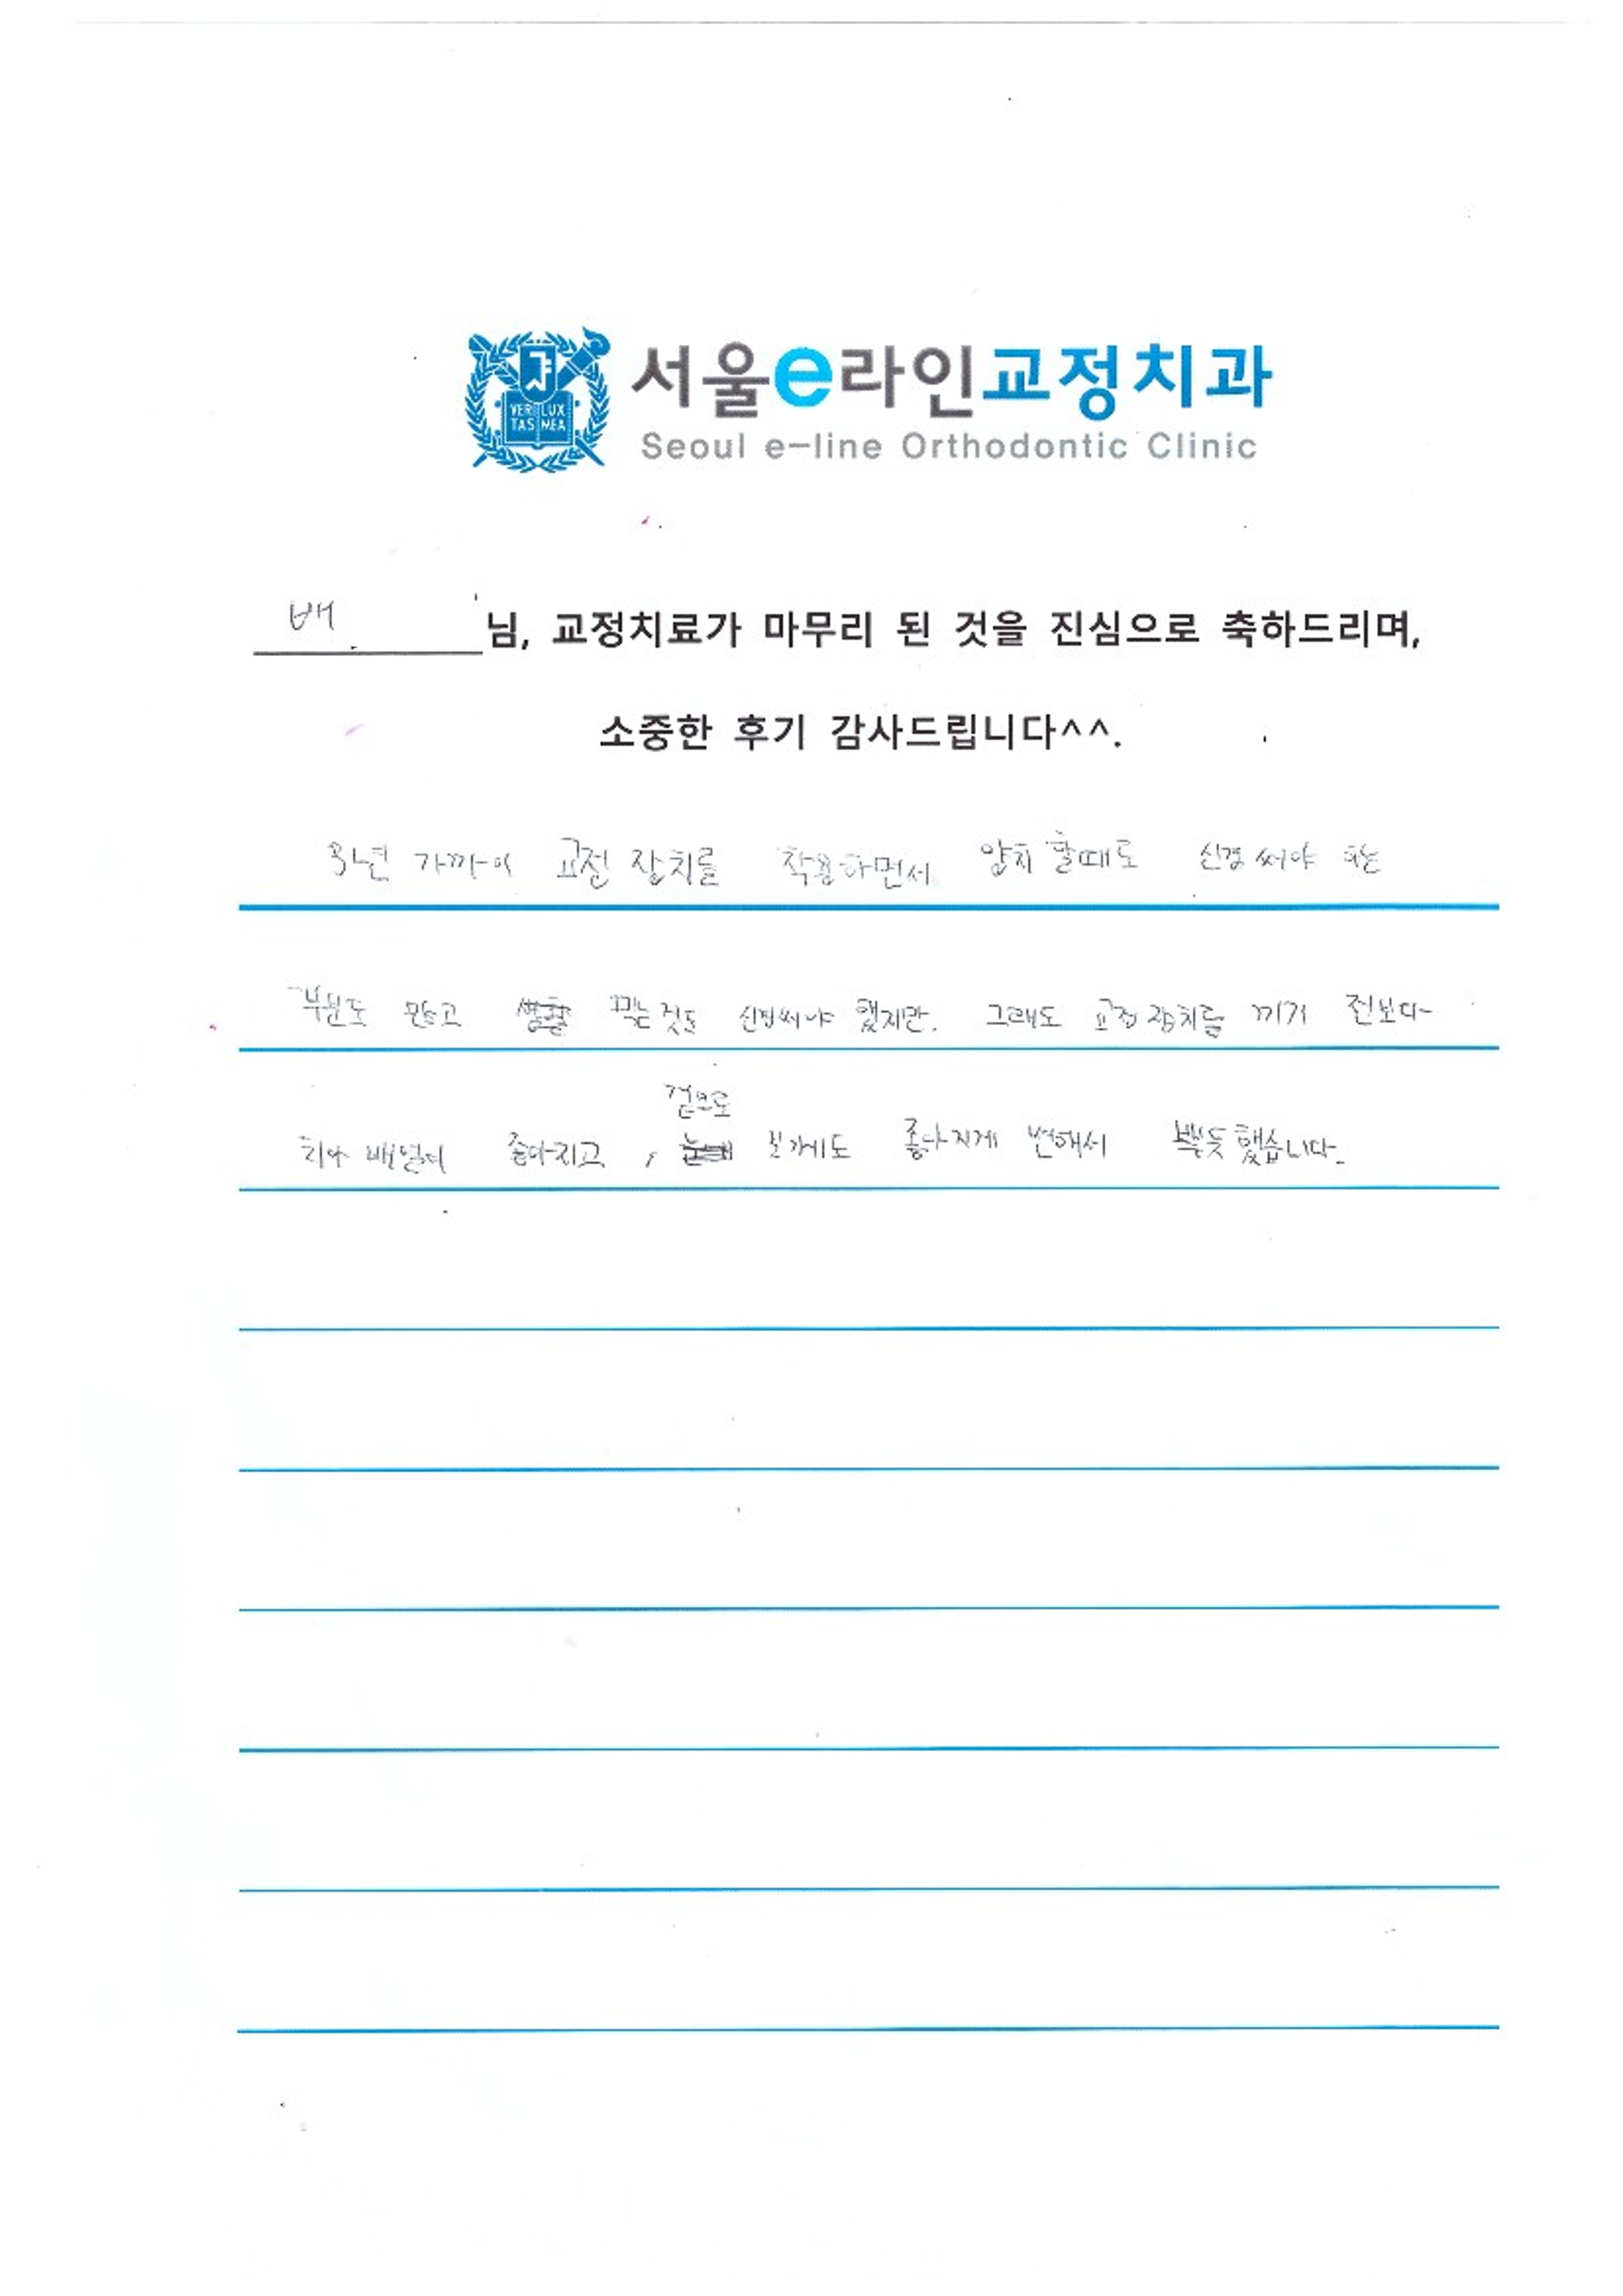 서울e라인교정치과
VERI LUX
TAS MEA
Seoul e-line Orthodontic Clinic
배 님, 교정치료가 마무리 된 것을 진심으로 축하드리며,
소중한 후기 감사드립니다^^.
3년 가까이 교정 장치를 착용하면서 양치 할때도 신경 써야 하는
부분도 많고 먹는 것도 신경써야 했지만, 그래도 교정 장치를 끼기 전보다
겉으로
치아 배열이 좋아지고, 보기에도 좋아지게 변해서 뿌듯했습니다.